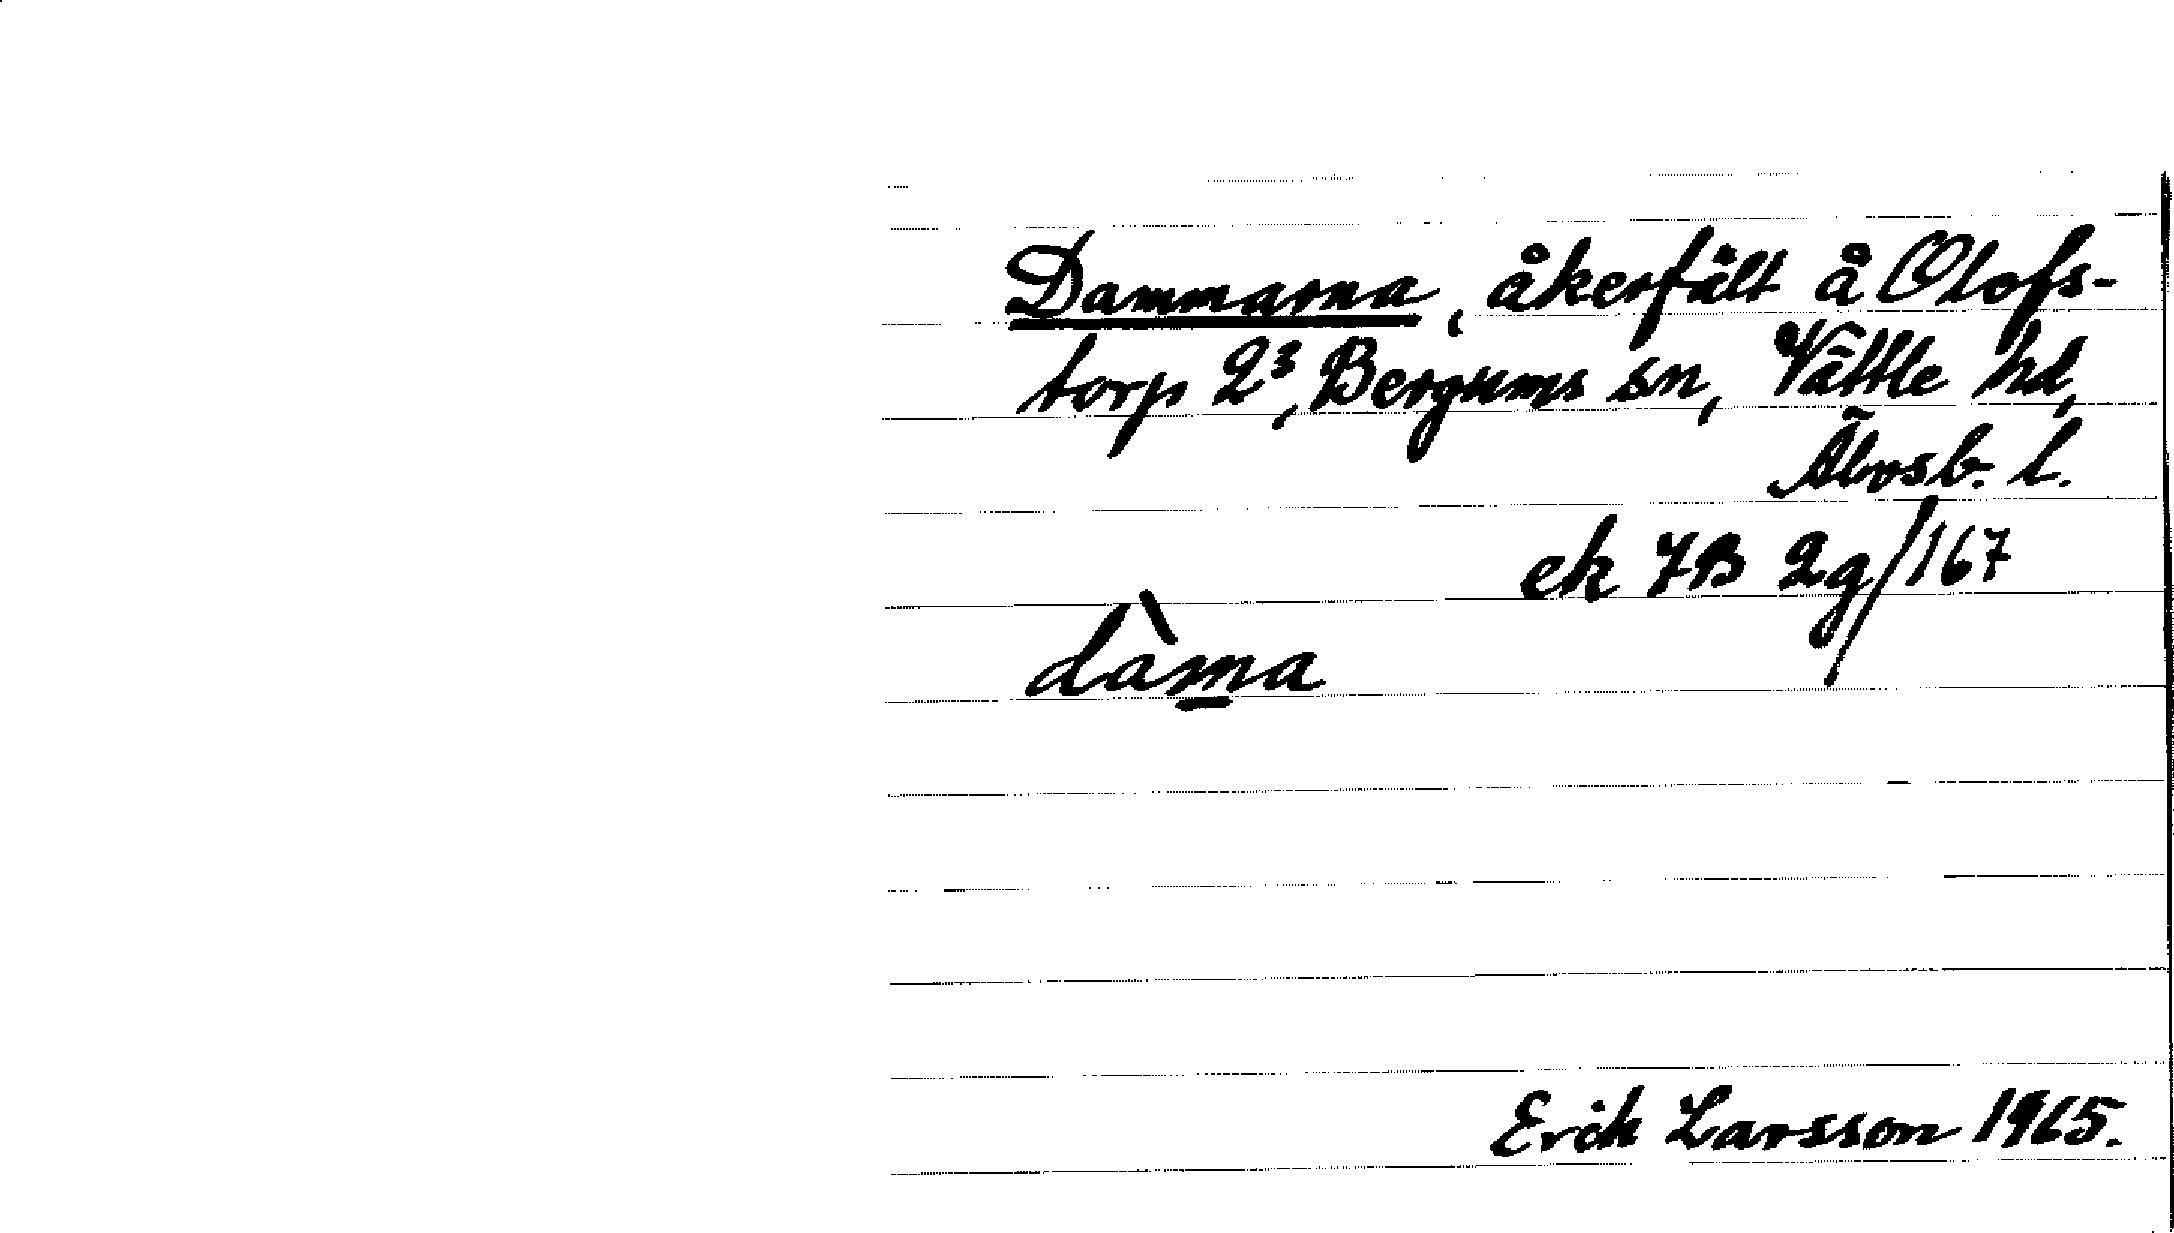 Dammarna, åkerfält å Olofs-
torp 2³, Bergums sn, Vättle hd,
Älvsb. l.
ek 7B 2g/167
dàm̲a
Erik Larsson 1965.